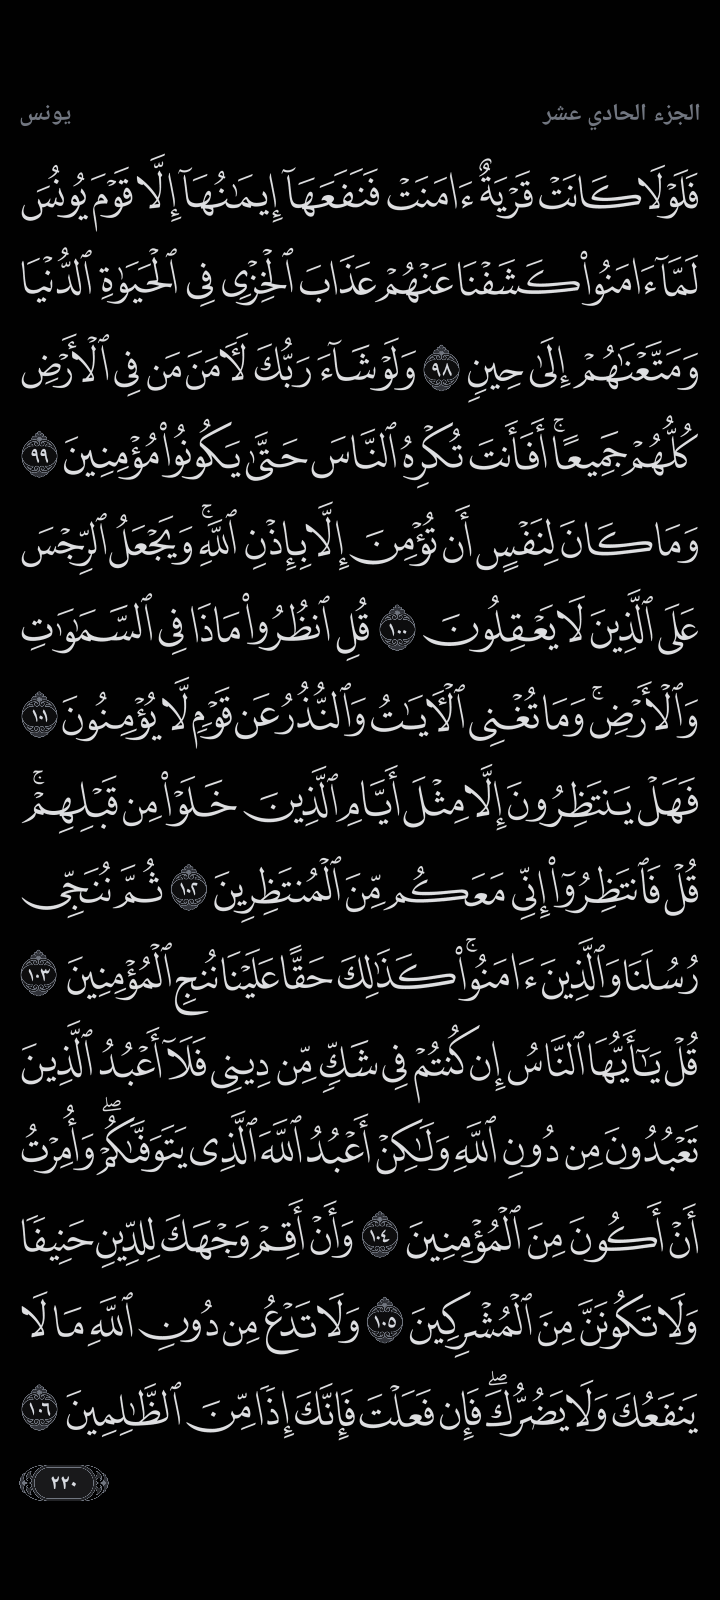 الجزء الحادي عشر
يونس
فَلَوۡلَا كَانَتۡ قَرۡيَةٌ ءَامَنَتۡ فَنَفَعَهَآ إِيمَٰنُهَآ إِلَّا قَوۡمَ يُونُسَ
لَمَّآ ءَامَنُواْ كَشَفۡنَا عَنۡهُمۡ عَذَابَ ٱلۡخِزۡيِ فِي ٱلۡحَيَوٰةِ ٱلدُّنۡيَا
وَمَتَّعۡنَٰهُمۡ إِلَىٰ حِينٖ ٩٨ وَلَوۡ شَآءَ رَبُّكَ لَأٓمَنَ مَن فِي ٱلۡأَرۡضِ
كُلُّهُمۡ جَمِيعًاۚ أَفَأَنتَ تُكۡرِهُ ٱلنَّاسَ حَتَّىٰ يَكُونُواْ مُؤۡمِنِينَ ٩٩
وَمَا كَانَ لِنَفۡسٍ أَن تُؤۡمِنَ إِلَّا بِإِذۡنِ ٱللَّهِۚ وَيَجۡعَلُ ٱلرِّجۡسَ
عَلَى ٱلَّذِينَ لَا يَعۡقِلُونَ ١٠٠ قُلِ ٱنظُرُواْ مَاذَا فِي ٱلسَّمَٰوَٰتِ
وَٱلۡأَرۡضِۚ وَمَا تُغۡنِي ٱلۡأٓيَٰتُ وَٱلنُّذُرُ عَن قَوۡمٖ لَّا يُؤۡمِنُونَ ١٠١
فَهَلۡ يَنتَظِرُونَ إِلَّا مِثۡلَ أَيَّامِ ٱلَّذِينَ خَلَوۡاْ مِن قَبۡلِهِمۡۚ
قُلۡ فَٱنتَظِرُوٓاْ إِنِّي مَعَكُم مِّنَ ٱلۡمُنتَظِرِينَ ١٠٢ ثُمَّ نُنَجِّي
رُسُلَنَا وَٱلَّذِينَ ءَامَنُواْۚ كَذَٰلِكَ حَقًّا عَلَيۡنَا نُنجِ ٱلۡمُؤۡمِنِينَ ١٠٣
قُلۡ يَٰٓأَيُّهَا ٱلنَّاسُ إِن كُنتُمۡ فِي شَكّٖ مِّن دِينِي فَلَآ أَعۡبُدُ ٱلَّذِينَ
تَعۡبُدُونَ مِن دُونِ ٱللَّهِ وَلَٰكِنۡ أَعۡبُدُ ٱللَّهَ ٱلَّذِي يَتَوَفَّىٰكُمۡۖ وَأُمِرۡتُ
أَنۡ أَكُونَ مِنَ ٱلۡمُؤۡمِنِينَ ١٠٤ وَأَنۡ أَقِمۡ وَجۡهَكَ لِلدِّينِ حَنِيفٗا
وَلَا تَكُونَنَّ مِنَ ٱلۡمُشۡرِكِينَ ١٠٥ وَلَا تَدۡعُ مِن دُونِ ٱللَّهِ مَا لَا
يَنفَعُكَ وَلَا يَضُرُّكَۖ فَإِن فَعَلۡتَ فَإِنَّكَ إِذٗا مِّنَ ٱلظَّٰلِمِينَ ١٠٦
٢٢٠